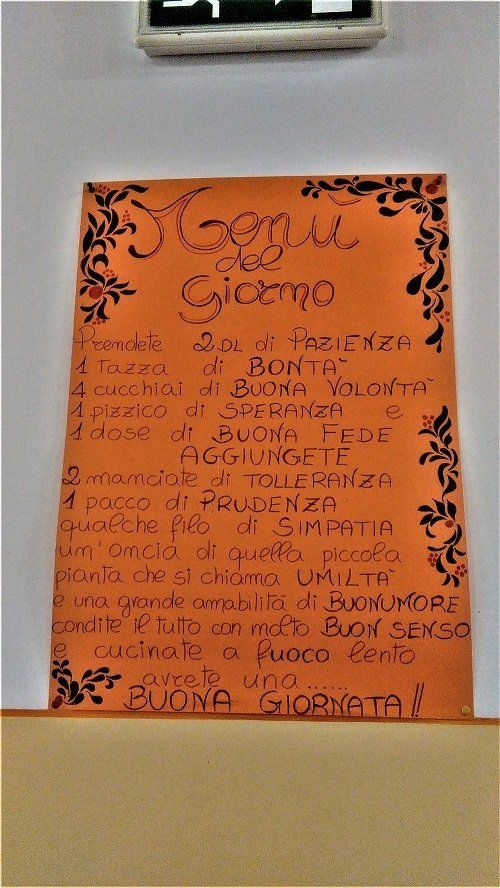 Menù
del
Giorno
Prendete 2 DL di PAZIENZA
1 Tazza di BONTA'
4 cucchiai di BUONA VOLONTA'
1 pizzico di SPERANZA e
1 dose di BUONA FEDE
AGGIUNGETE
2 manciate di TOLLERANZA
1 pacco di PRUDENZA
qualche filo di SIMPATIA
un'oncia di quella piccola
pianta che si chiama UMILTA'
e una grande amabilità di BUONUMORE
condite il tutto con molto BUON SENSO
e cucinate a fuoco lento
avrete una......
BUONA GIORNATA!!